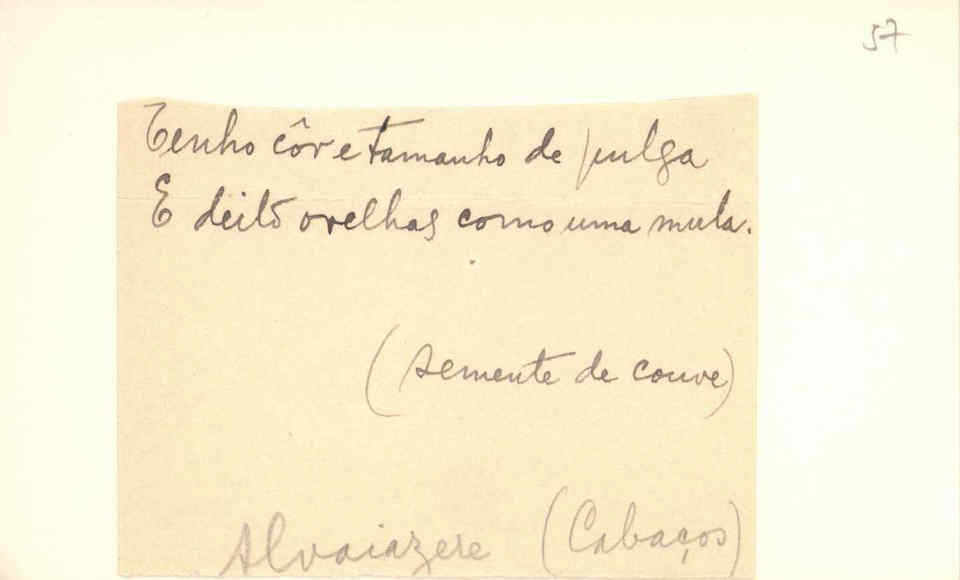 57
Tenho côr e tamanho de pulga
E deito orelhas como uma mula.
(semente de couve)
Alvaiazere (Cabaços)